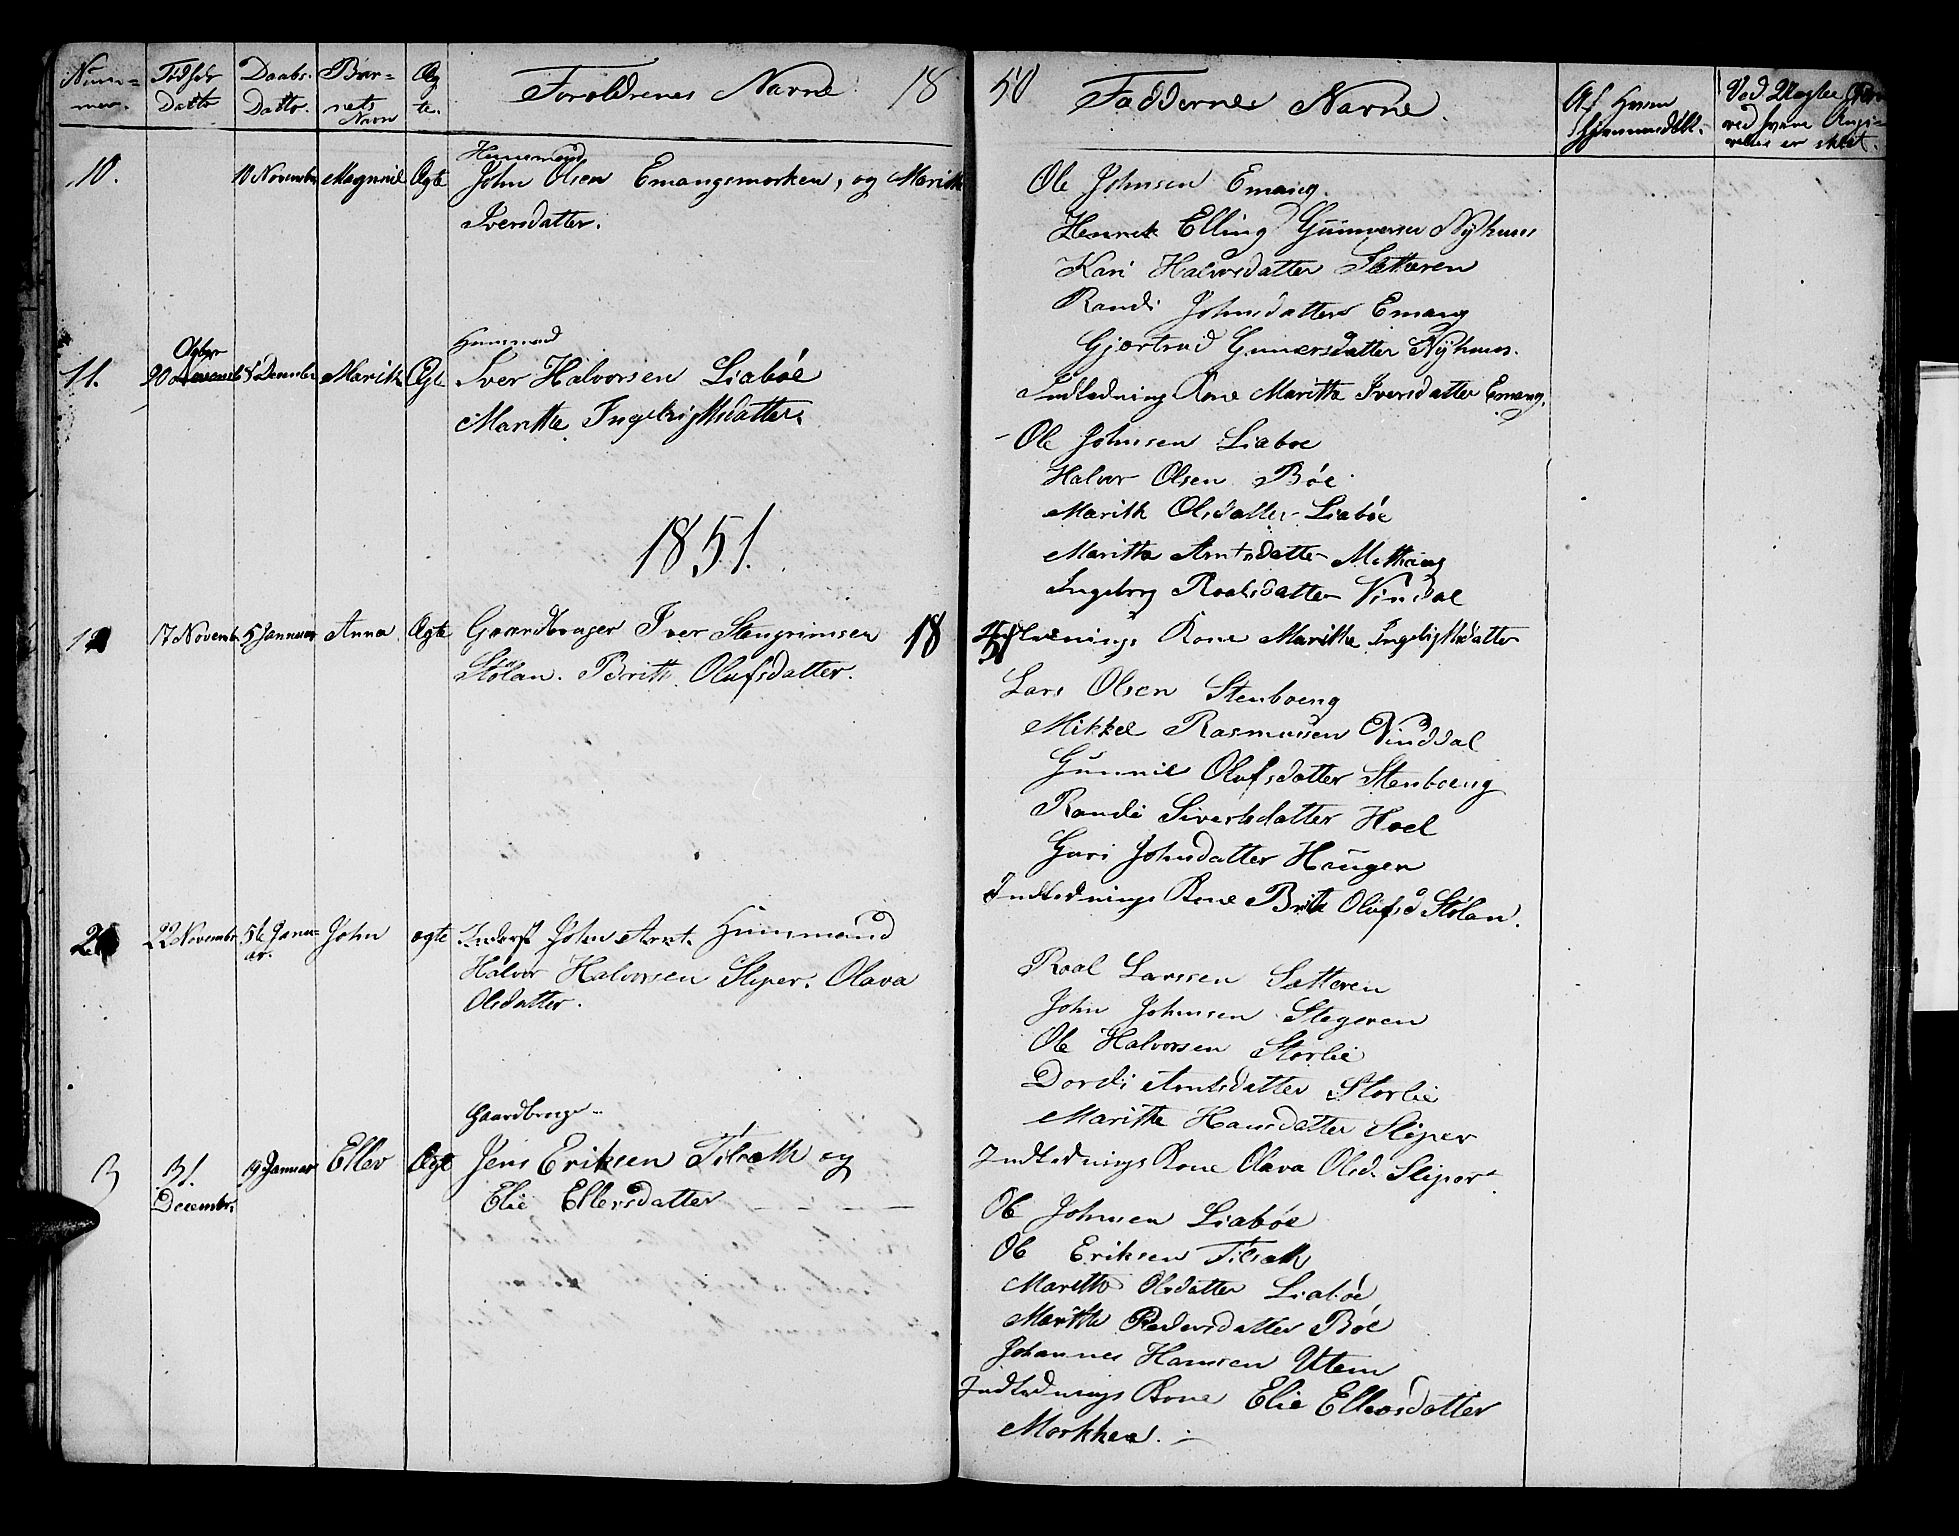 Num-
mer.
Fødsels
Datto
Daabs-
Datto.
Bør-
nets
Navn
Æg
te.
Forældrenes Navne 18
50 Faddernes Navne.
Af Hvem
10. 10 November Magnil Ægte Huusmand
John Olsen Emangsmarken, og Marith
Iversdatter.
Ole Johnsen Emang.
Henrik Elling Gunnersen Nyhuus
Kari Halvorsdatter Sætteren
Randi Johnsdatter Emang
Gjertrud Gunersdatter Nyhuus.
Indledning Kone Maritte Iversdatter Emang.
11. 20 8 December Marith Ægte Huusmand
Iver Halvorsen Liabøe
Maritte Ingebrigtsdatter.
Ole Johnsen Liaboe
Halvor Olsen Bøe
Marith Olsdatter Liabøe
Maritte Arntsdatter
Ingeborg Roalsdatter Vindal
Indlednings Kone Maritte Ingebrigtsdatter
1851.
1 17 Novembr 5 Januar Anna Ægte Gaardbruger Iver Stengrimsen
Stölan. Beritt Olufsdatter.
18 51
Lars Olsen Stenboeng
Mikkel Rasmussen Vinddal
Gunnil Olufsdatter Stenboeng
Randi Sivertsdatter Hoel
Guri Johnsdatter Haugen
Indlednings Kone Brit Olufsd Stölan.
2 22 Novembr 5te Janu-
ar. John ægte Inderst John Arnt. Huusmand
Halvor Halvorsen Sliper. Olava
Olsdatter.
Roal Larssen Sætteren
John Johnsen Stegeren
Ole Halvorsen Storlie
Dordi Arntsdatter Storlie
Maritte Hansdatter Sliper
Indlednings Kone Olava Olsd. Sliper
3 31.
Decembr. 19 Januar Ellev Ægte Gaardbruger
Jens Eriksen Tilseth og
Elie Ellevsdatter
Ole Johnsen Liabøe
Ole Eriksen Tilseth
Maritte Olsdatter Liabøe
Maritte Pedersdatter Bøe
Johannes Hansen Utem
Indlednings Kone Elie Ellevsdatter
Morkhea.